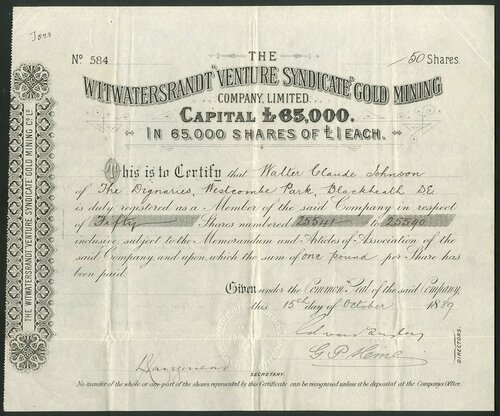 No 584
THE
50 Shares
WITWATERSRANDT "VENTURE SYNDICATE" GOLD MINING
COMPANY, LIMITED.
CAPITAL £65,000.
IN 65,000 SHARES OF £1 EACH.
This is to Certify that Walter Claude Johnson
of The Dignaries, Westcombe Park, Blackheath SE
is duly registered as a Member of the said Company in respect
of Fifty Shares numbered 25541 to 25590
inclusive, subject to the Memorandum and Articles of Association of the
said Company and upon which the sum of one pound per Share has
been paid.
Given under the Common Seal of the said Company
this 15th day of October 1889
DIRECTORS.
SECRETARY.
No transfer of the whole or any part of the shares represented by this Certificate can be recognised unless it be deposited at the Company's Office.
THE WITWATERSRANDT "VENTURE SYNDICATE" GOLD MINING Co. Ld.